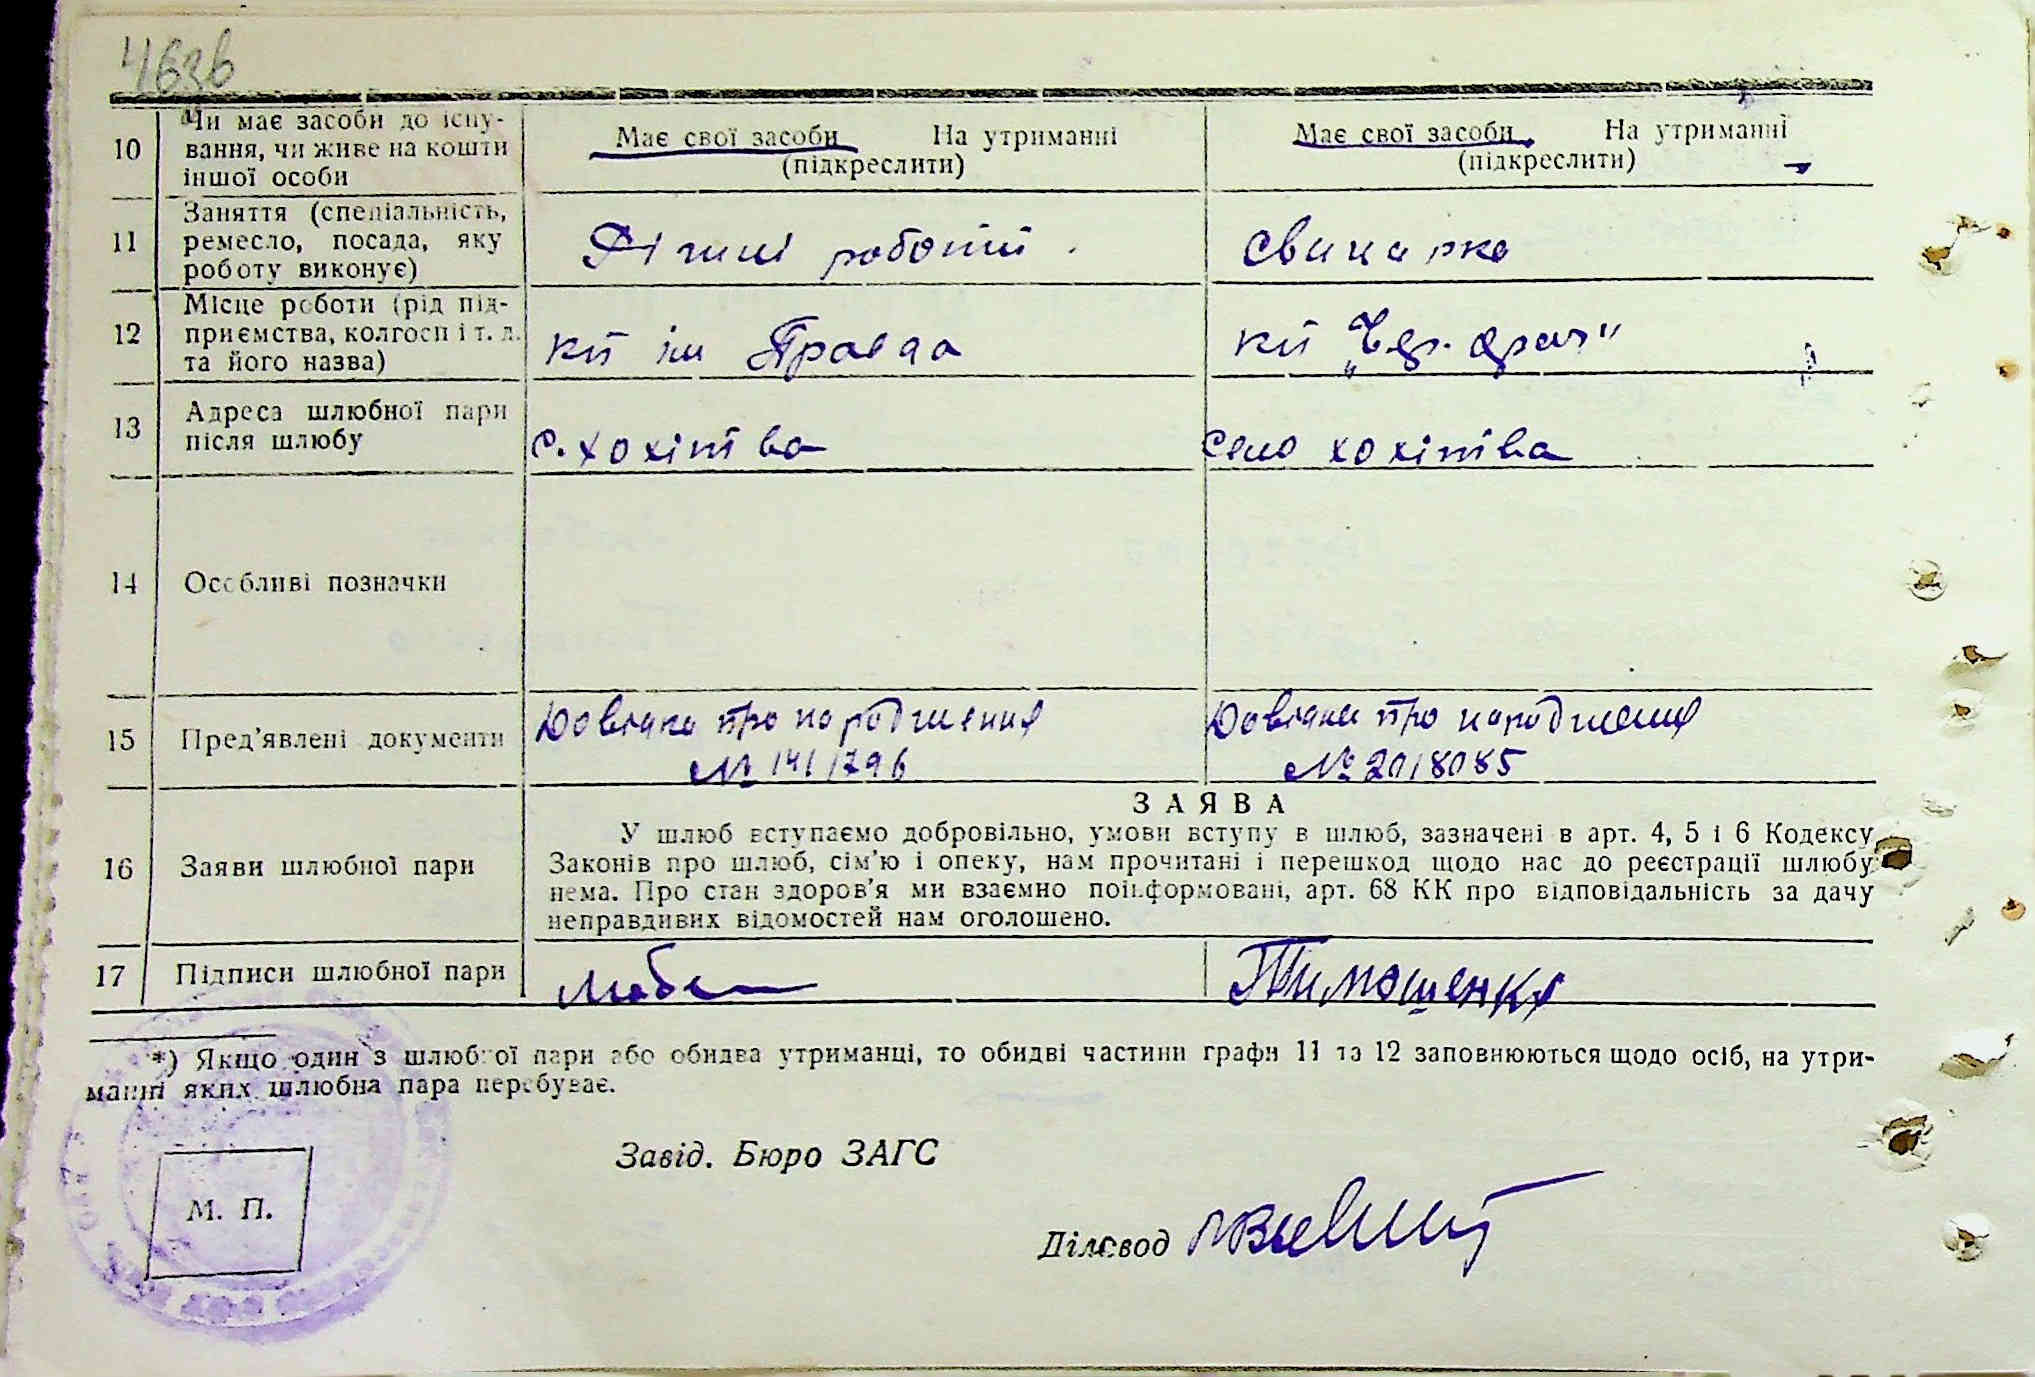 463б
10 Чи має засоби до існу-
вання, чи живе на кошти
іншої особи
Має свої засоби На утриманні
(підкреслити)
Має свої засоби На утриманні
(підкреслити)
11 Заняття (спеціальність,
ремесло, посада, яку
роботу виконує)
Різні роботи
Свинарка
12 Місце роботи (рід під-
приємства, колгосп і т. д.
та його назва)
кп ім Правда
кп „Чер. Прап"
13 Адреса шлюбної пари
після шлюбу
с. Хохітва
Село Хохітва
14 Особливі позначки
15 Пред'явлені документи
Довідка про народження
№ 141796
Довідка про народження
№ 2018085
16 Заяви шлюбної пари
ЗАЯВА
У шлюб вступаємо добровільно, умови вступу в шлюб, зазначені в арт. 4, 5 і 6 Кодексу
Законів про шлюб, сім'ю і опеку, нам прочитані і перешкод щодо нас до реєстрації шлюбу
нема. Про стан здоров'я ми взаємно поінформовані, арт. 68 КК про відповідальність за дачу
неправдивих відомостей нам оголошено.
17 Підписи шлюбної пари
Тимошенко
*) Якщо один з шлюбної пари або обидва утриманці, то обидві частини графи 11 та 12 заповнюються щодо осіб, на утри-
манні яких шлюбна пара перебуває.
Завід. Бюро ЗАГС
М. П.
Діловод